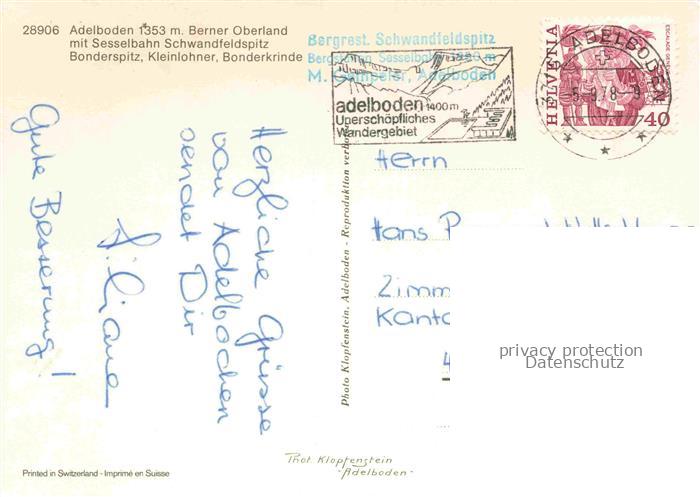 28906 Adelboden 1353 m. Berner Oberland
mit Sesselbahn Schwandfeldspitz
Bonderspitz, Kleinlohner, Bonderkrinde
Bergrest. Schwandfeldspitz
Bergstation Sesselbahn
M. Gempeler, Adelboden
adelboden 1400 m
Unerschöpfliches
Wandergebiet
HELVETIA
40
ADELBODEN
-5.9.78-9
Herzliche Grüsse
von Adelboden
sendet Dir
Liliane
Gute Besserung!
Herrn
Hans
Zimm
Kanto
privacy protection
Datenschutz
Photo Klopfenstein, Adelboden - Reproduktion verboten
Phot. Klopfenstein
-Adelboden-
Printed in Switzerland - Imprimé en Suisse